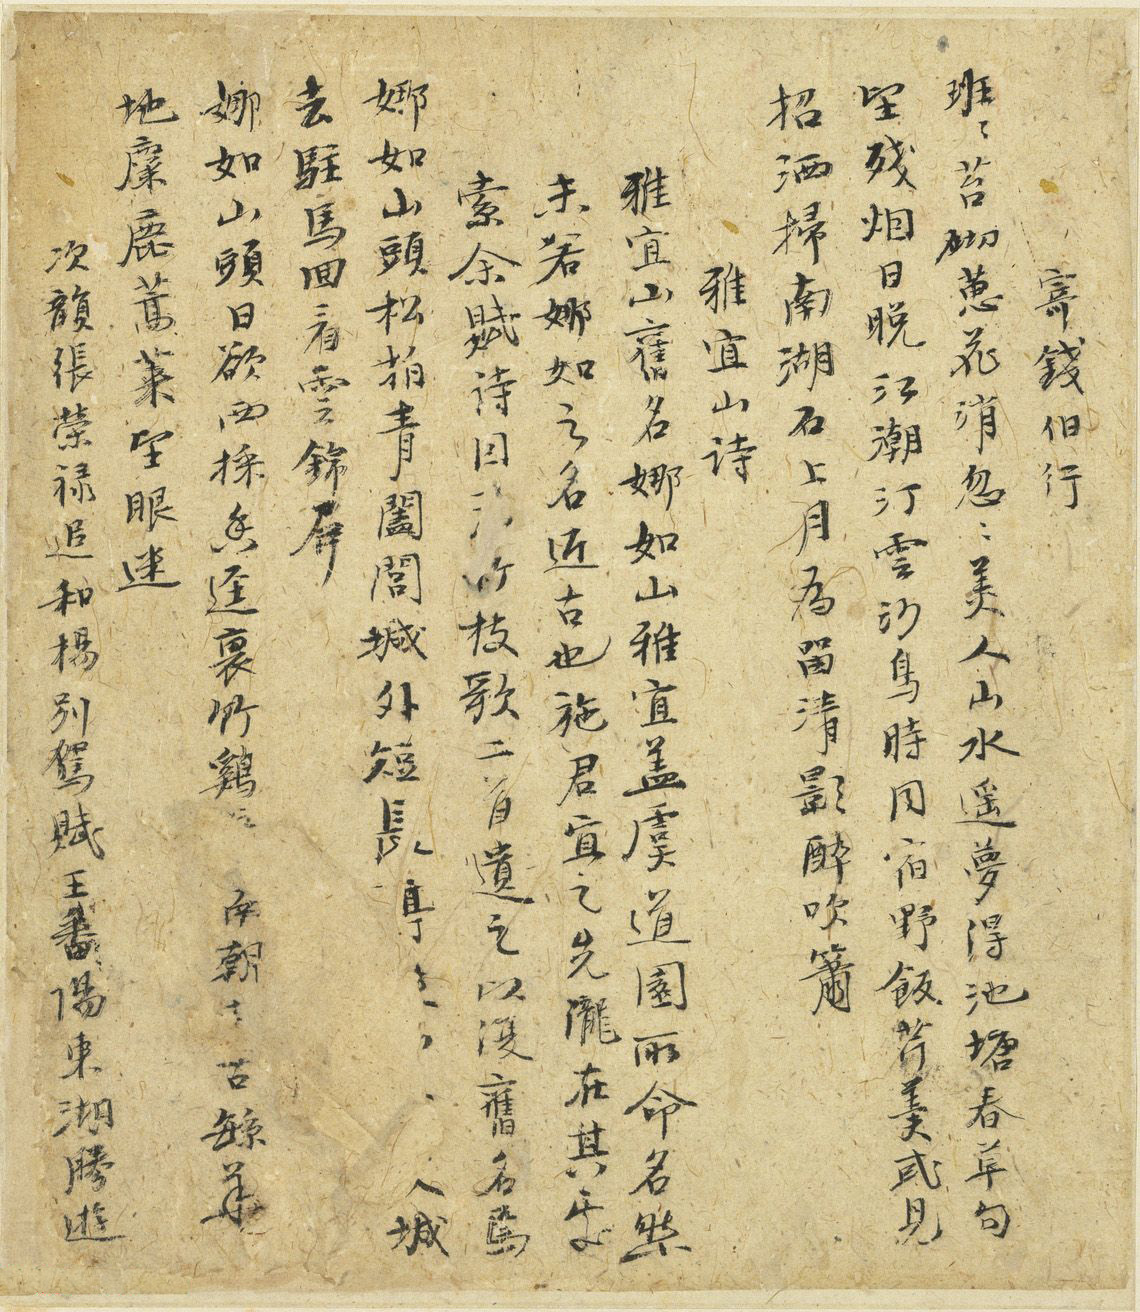 寄錢伯行
班〻苔砌蔥花消忽〻美人山水遥夢得池塘春草句
望残烟日晩江潮汀雲沙鳥時同宿野飯芹羹或見
招洒掃南湖石上月為留清影醉吹簫
雅宜山詩
雅宜山舊名娜如山雅宜盖虞道園所命名然
未若娜如之名近古也施君宜之先隴在其處
索余賦詩因 竹枝歌二首遺之以復舊名焉
娜如山頭松柏青闔閭城外短長亭 入城
去駐馬回看雲錦屏
娜如山頭日欲西採香逕裏竹鷄 南朝 古 蘇 臺
地麋鹿蒿萊望眼迷
次韻張榮禄追和楊别駕賦王番陽東湖勝遊